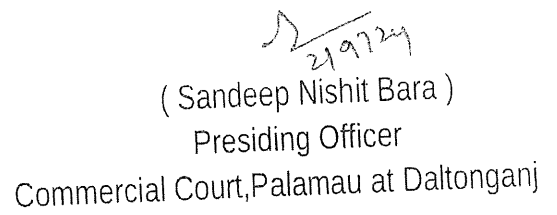 2/9/24
( Sandeep Nishit Bara )
Presiding Officer
Commercial Court,Palamau at Daltonganj